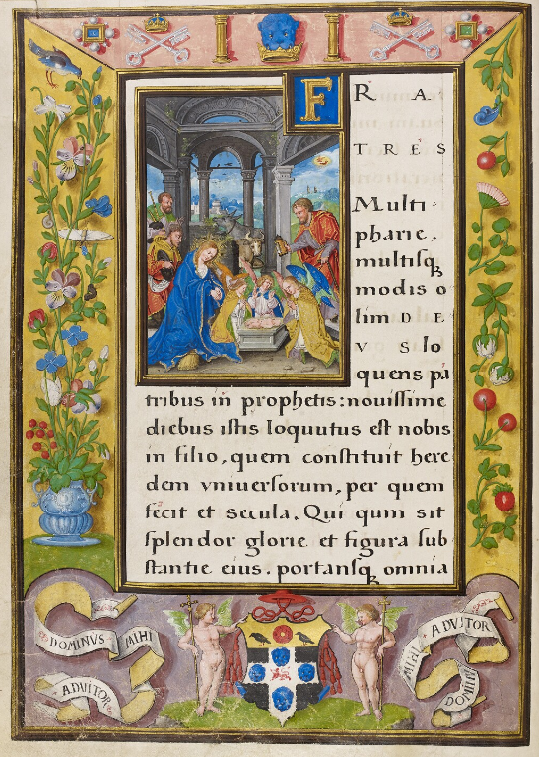 F R A
T R E S
Multi
pharie.
multisq
modis o
lim D E
V S lo
quens pa
tribus in prophetis: nouissime
diebus istis loquutus est nobis
in filio, quem constituit here
dem vniuersorum, per quem
fecit et secula. Qui qum sit
splendor glorie et figura sub
stantie eius. portansq omnia
DOMINVS MIHI
ADVITOR
MIHI ADVITOR